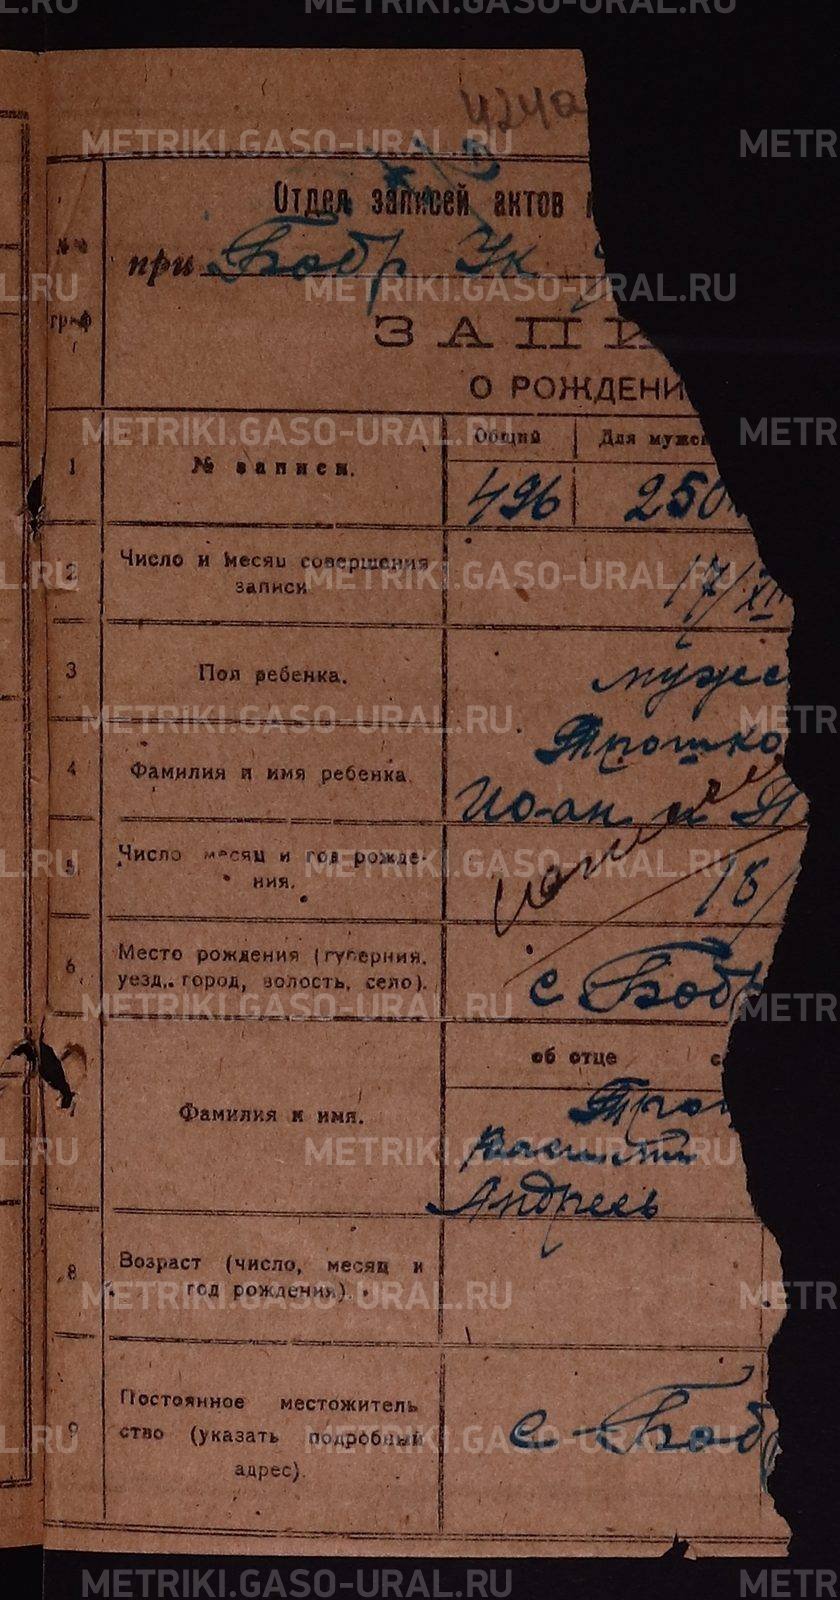 424а
Отдел записей актов
при Бобр Ук
№№ граф
ЗАПИ
О РОЖДЕНИ
1 № записи. Общий Для мужс
496 250
2 Число и месяц совершения записи 17/XII
3 Пол ребенка. мужс
4 Фамилия и имя ребенка Трошко
Ио-ан и П
5 Число месяц и год рожде-
ния. 15/
6 Место рождения (губерния,
уезд, город, волость, село). с Бобр
об отце
7 Фамилия и имя. Трош
Василий
Андреев
8 Возраст (число, месяц и
год рождения).
9 Постоянное местожитель
ство (указать подробный
адрес). с Боб
METRIKI.GASO-URAL.RU